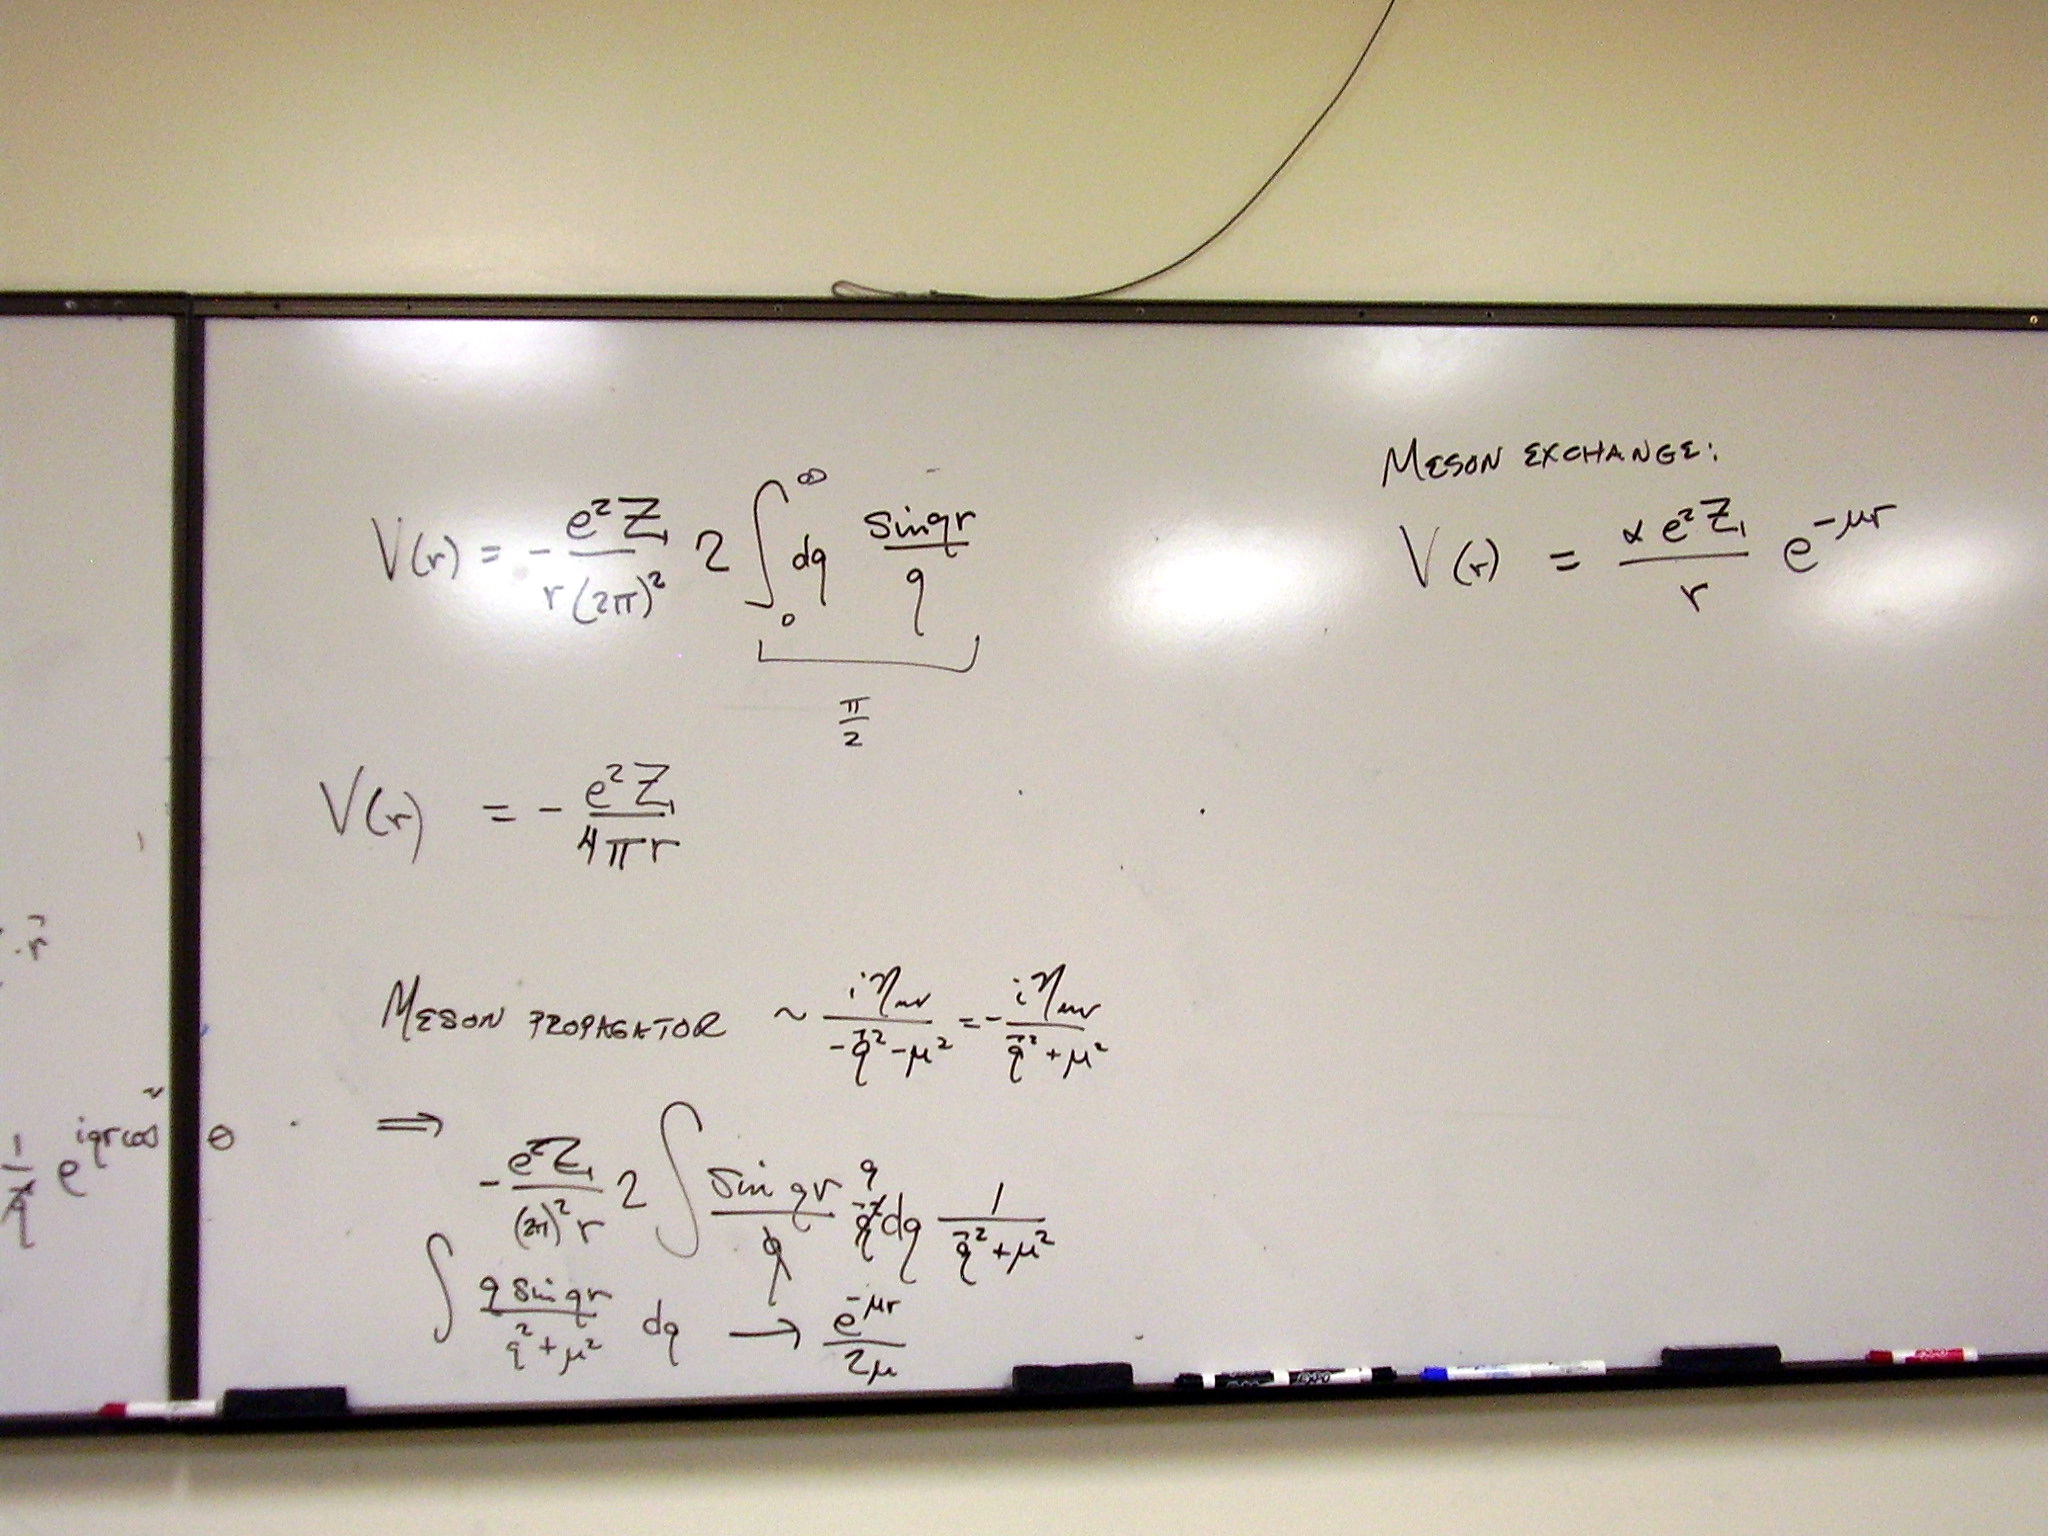 ·r⃗
1/q e^{iqr cos θ}
V(r) = - e²Z₁ / r(2π)² 2 ∫₀^∞ dq sin qr / q
π/2
V(r) = - e²Z₁ / 4πr
MESON PROPAGATOR ~ iη_{μν} / -q⃗²-μ² = - iη_{μν} / q⃗²+μ²
⇒
- e²Z₁ / (2π)² r 2 ∫ sin qr / q q q⃗² dq 1 / q⃗²+μ²
∫ q sin qr / q²+μ² dq → e^{-μr} / 2μ
MESON EXCHANGE:
V(r) = α e²Z₁ / r e^{-μr}